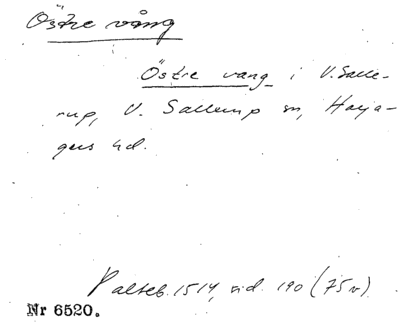 Östre vång
Östre vang i V. Salle-
rup, V. Sallerup sn, Harja-
gers hd.
Palteb. 1514, sid. 190 (75v)
Nr 6520.